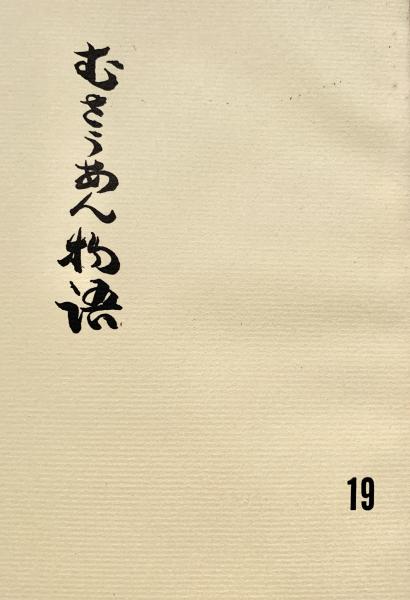 むさうあん物語
19